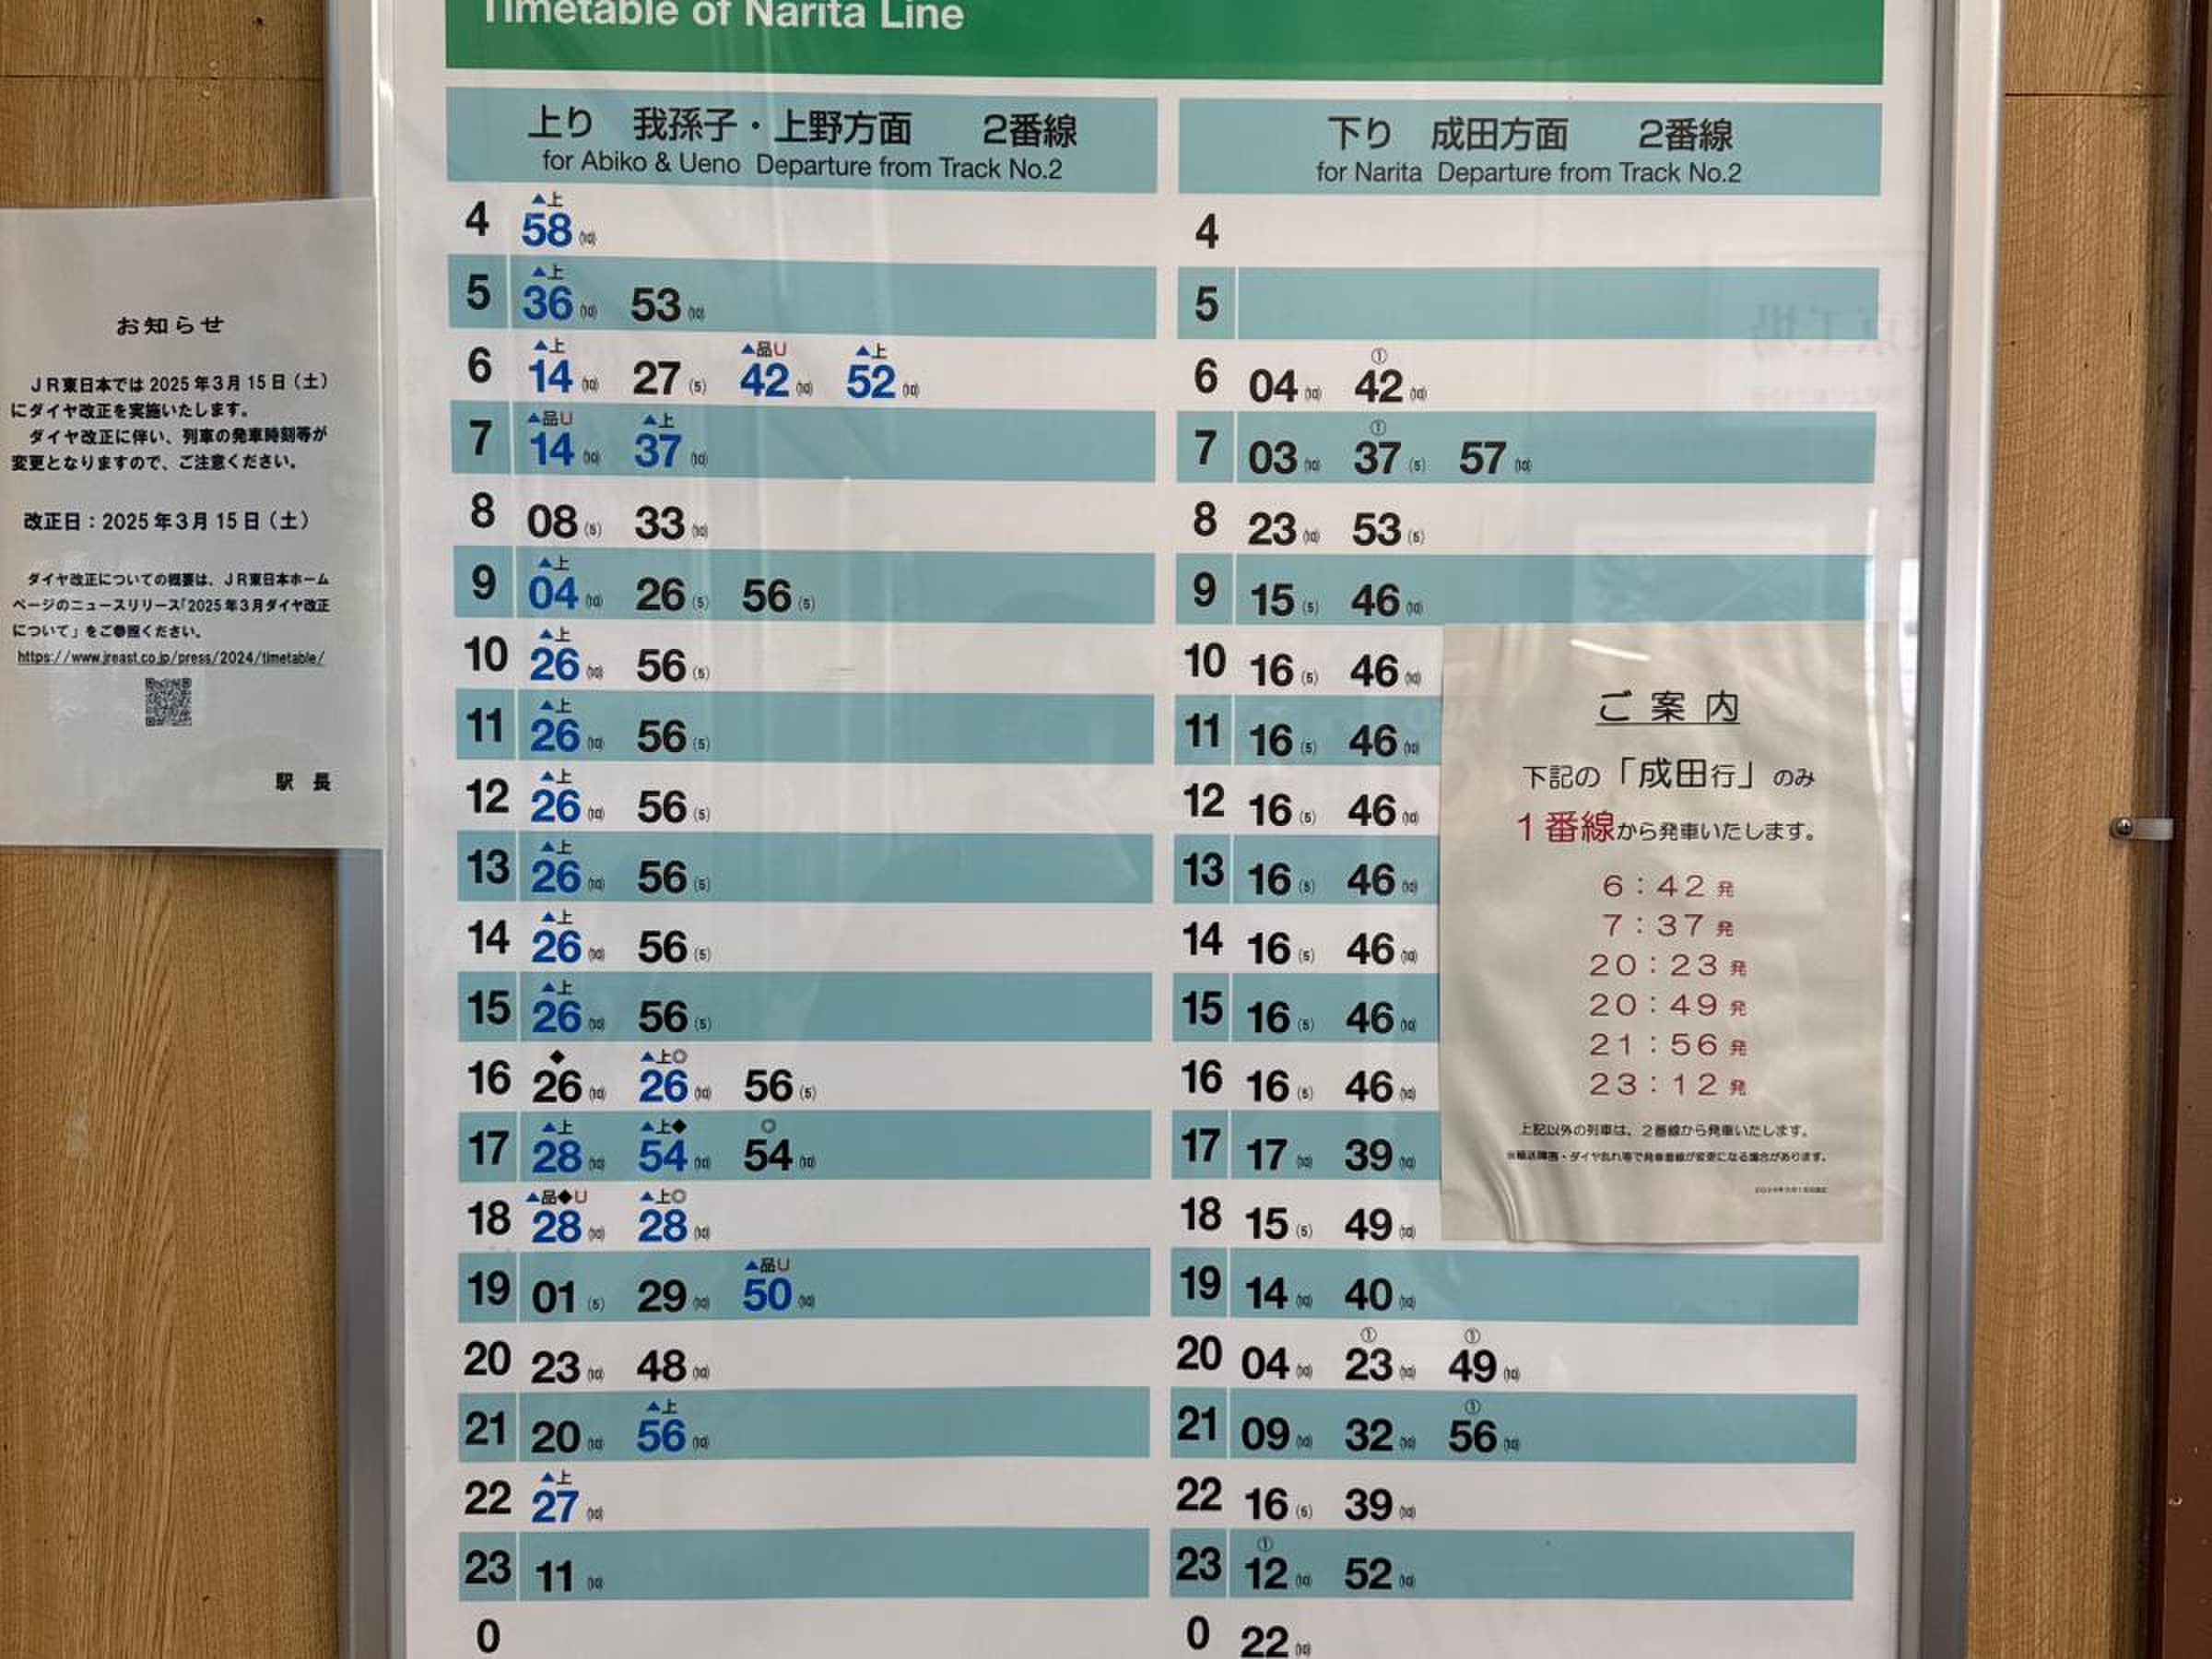 Timetable of Narita Line
上り 我孫子・上野方面 2番線
for Abiko & Ueno Departure from Track No.2
▲上
4 58(10)
▲上
5 36(10) 53(10)
▲上 ▲品U ▲上
6 14(10) 27(5) 42(10) 52(10)
▲品U ▲上
7 14(10) 37(10)
8 08(5) 33(10)
▲上
9 04(10) 26(5) 56(5)
▲上
10 26(10) 56(5)
▲上
11 26(10) 56(5)
▲上
12 26(10) 56(5)
▲上
13 26(10) 56(5)
▲上
14 26(10) 56(5)
▲上
15 26(10) 56(5)
◆ ▲上◎
16 26(10) 26(10) 56(5)
▲上 ▲上◆ ◎
17 28(10) 54(10) 54(10)
▲品◆U ▲上◎
18 28(10) 28(10)
▲品U
19 01(5) 29(10) 50(10)
20 23(10) 48(10)
▲上
21 20(10) 56(10)
▲上
22 27(10)
23 11(10)
0
下り 成田方面 2番線
for Narita Departure from Track No.2
4
5
①
6 04(10) 42(10)
①
7 03(10) 37(5) 57(10)
8 23(10) 53(5)
9 15(5) 46(10)
10 16(5) 46(10)
11 16(5) 46(10)
12 16(5) 46(10)
13 16(5) 46(10)
14 16(5) 46(10)
15 16(5) 46(10)
16 16(5) 46(10)
17 17(10) 39(10)
18 15(5) 49(10)
19 14(10) 40(10)
① ①
20 04(10) 23(10) 49(10)
①
21 09(10) 32(10) 56(10)
22 16(5) 39(10)
①
23 12(10) 52(10)
0 22(10)
お知らせ
JR東日本では2025年3月15日(土)
にダイヤ改正を実施いたします。
ダイヤ改正に伴い、列車の発車時刻等が
変更となりますので、ご注意ください。
改正日:2025年3月15日(土)
ダイヤ改正についての概要は、JR東日本ホーム
ページのニュースリリース「2025年3月ダイヤ改正
について」をご参照ください。
https://www.jreast.co.jp/press/2024/timetable/
駅 長
ご 案 内
下記の「成田行」のみ
1番線から発車いたします。
6:42発
7:37発
20:23発
20:49発
21:56発
23:12発
上記以外の列車は、2番線から発車いたします。
※輸送障害・ダイヤ乱れ等で発車番線が変更になる場合があります。